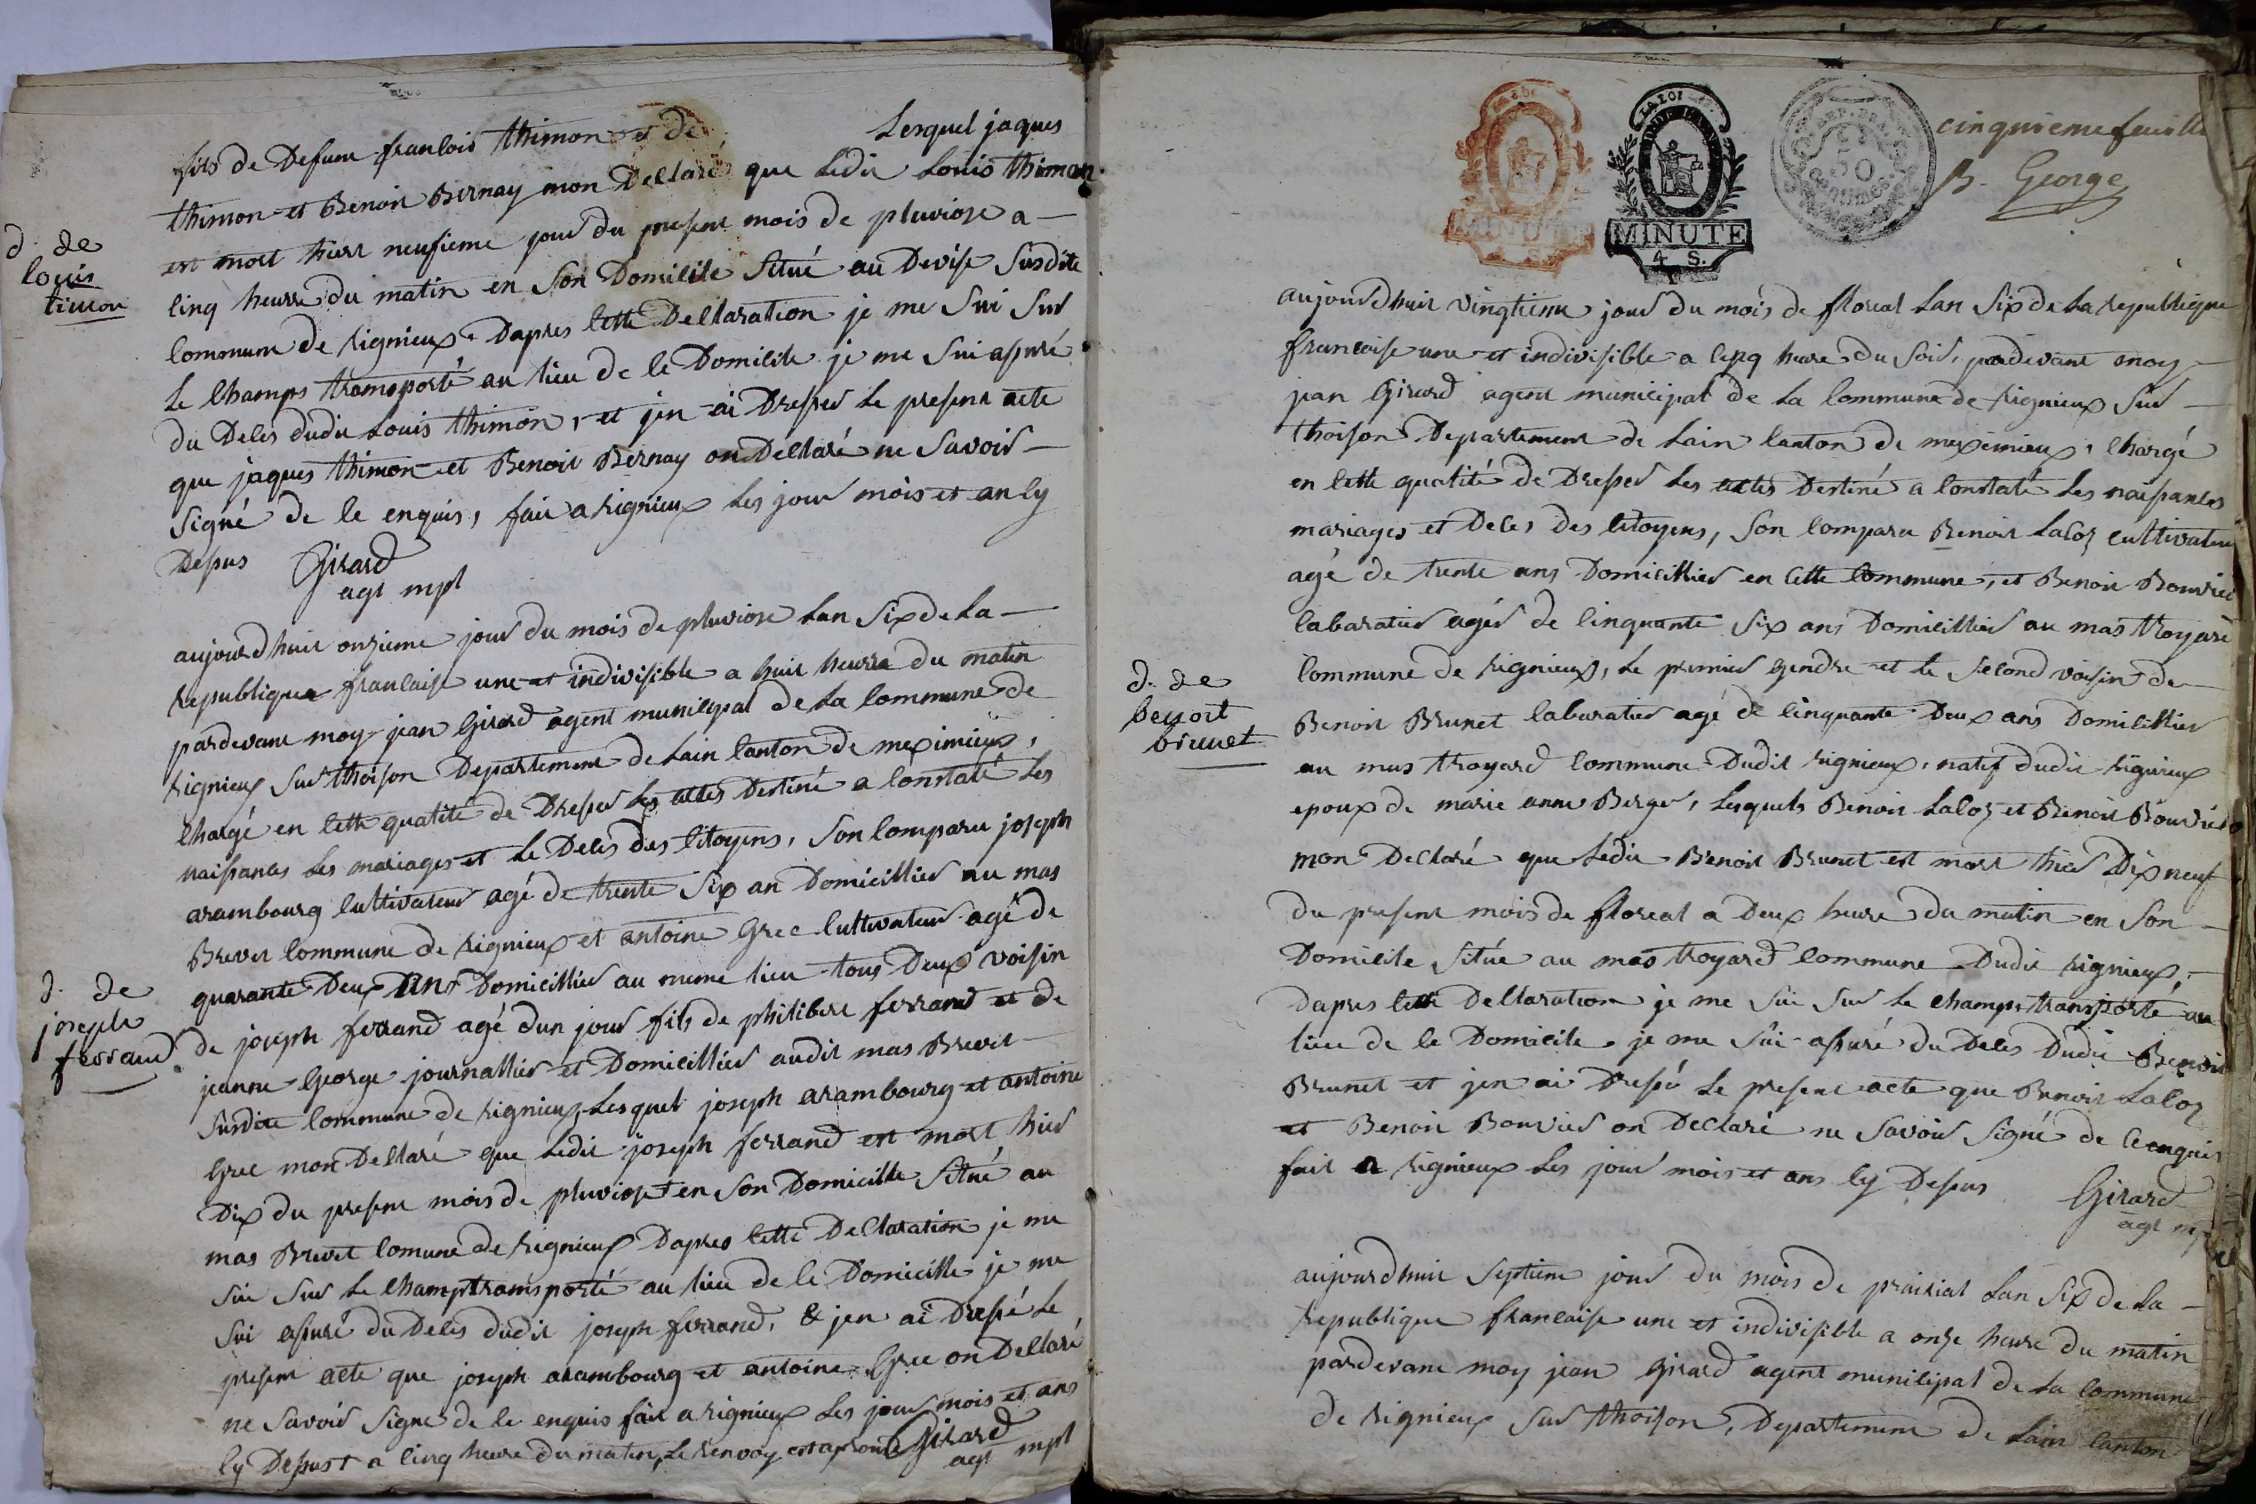 fils de Defunt franlois thimon et de Lesquel jaques
thimon et Benoit Bernay mon Dellaré que ledit Louis thimon
est mort hierr neufieme jour du present mois de pluviose a
linq heurre du matin en Son Domicile Situé au Devise Susdite
Commune de rignieux. Dapres Cette Dellaration je me Sui Sur
Le Champs transporté au lieu de Ce Domicile je me Sui assuré
du Deces dudit Louis thimon, et jen ai Dressé Le present acte
que jaques thimon et Benoit Bernay on Dellaré ne Savoir
Signé de Ce enquis, fait a rignieux Les jour mois et an Cy
Dessus Girard
agt mpl
d. de
louis
timon
aujourdhuit onzieme jour du mois de pluviose Lan Six de La
republique francaise une et indivisible a huit heurre du matin
pardevant moy jean Girard agent municipal de La Commune de
rignieux Sur thoison Departement de Lain Canton de meximieux,
Chargé en Cette qualité de Dresser Les actes Destiné a Constaté Les
naissances Les mariages et Le Deces des Citoyens, Son Comparu joseph
arambourg Cultivateur agé de trente Six an Domicillier au mas
Brevet Commune de rignieux et antoine Grec Cultivateur agé de
quarante Deux ans Domicillier au meme lieu tous Deux voisin
de joseph ferrand agé dun jour fils de philibert ferrand et de
jeanne George journallier et Domicillier audit mas Brevet
Susdite Commune de rignieux, Lesquel joseph arambourg et antoine
Grec mon Dellaré que Ledit joseph ferrand est mort hier
Dix du present mois de pluviose + en Son Domicille Situé au
mas Brevet Comune de rignieux Dapres Cette Declaration je me
Sui Sur Le Champ transporté au lieu de Ce Domicille je me
Sui assuré du Deces dudit joseph ferrand, & jen ai Dressé Le
present acte que joseph arambourg et antoine Grec on Dellaré
ne Savoir Signe de Ce enquis fait a rignieux Les jour mois et ans
Cy Dessus + a Cinq heure du matin, Le renvoy est aprouvé Girard
agt mpl
d. de
joseph
ferrand.
LA LOI
MINUTE
4. S.
MINUTE
4. S.
50
CENTIMES
cinquieme feuille
B. George
aujourdhuit vingtieme jour du mois de floreal Lan Six de La republique
francaise une et indivisible a Cepq heure du Soir, pardevant moy
jean Girard agent municipal de La Commune de rignieux Sur
thoison Departement de Lain Canton de meximieux, Chargé
en Cette qualité de Dresser Les actes Destiné a Constaté Les naissances
mariages et Deces des Citoyens, Son Comparu Benoit Laloz Cultivateur
agé de trente ans Domicillier en Cette Commune, et Benoit Bouvier
labaratier agér de Cinquante Six ans Domicillier au mas troyard
Commune de rignieux, Le premier gendre et Le Second voisin de
Benoit Brunet labaratier agé de Cinquante Deux ans Domicillier
au mas troyard Commune Dudit rignieux, natif dudit rignieux
epoux de marie anne Berger, Lesquels Benoit Laloz et Benoit Bouvier
mon Declaré que Ledit Benoit Brunet est mort hier Dix neuf
du present mois de floreal a Deux heure du matin en Son
Domicile Situé au mas troyard Commune Dudit rignieux,
Dapres Cette Dellaration je me Sui Sur Le Champs transporté au
lieu de Ce Domicile je me Sui assuré du Deces Dudit Benoit
Brunet et jen ai Dressé Le present acte que Benoit Laloz
et Benoit Bouvier on Declaré ne Savoir Signé de Ce enquis
fait a rignieux Les jour mois et ans Cy Dessus Girard
agt mp
d. de
benoit
brunet
aujourdhuit Septieme jour du mois de prairial Lan Six de La
republique francaise une et indivisible a onze heure du matin
pardevant moy jean Girard agent municipal de La Commune
de rignieux Sur thoison, Departement de Lain Canton